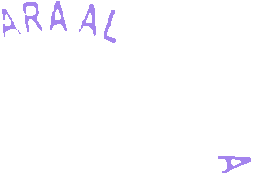 ARAAL
A